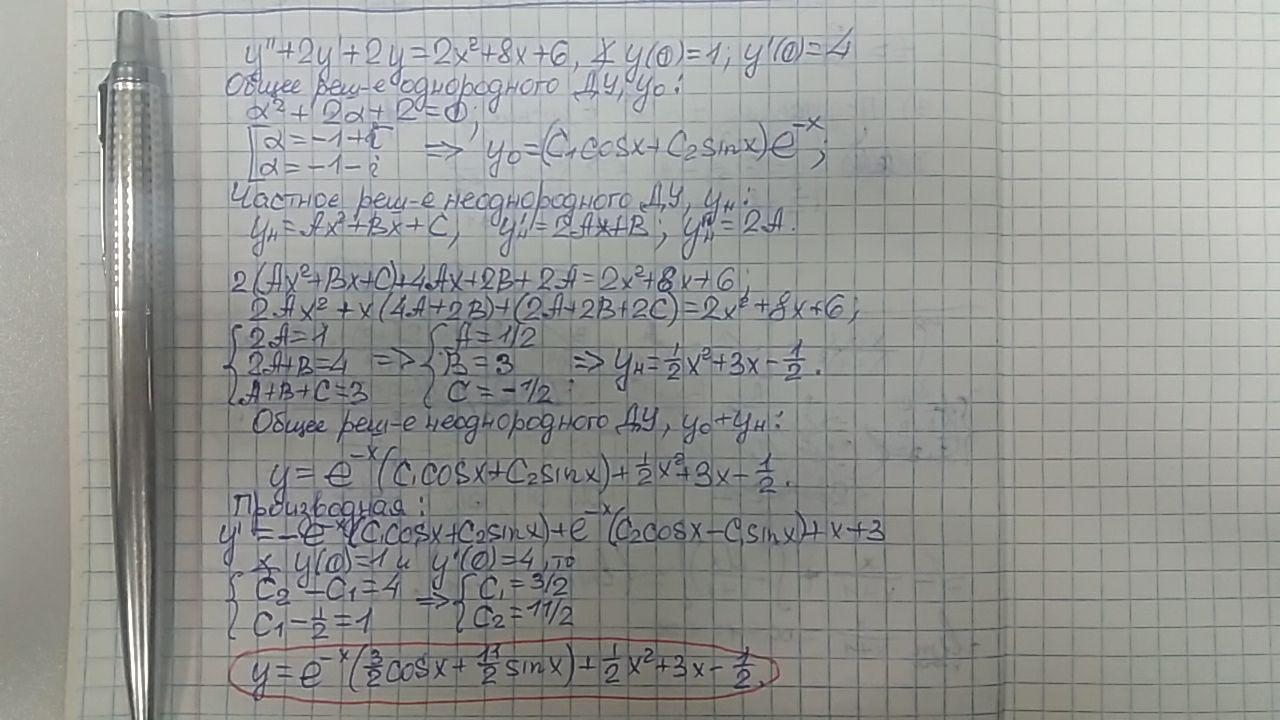 y''+2y'+2y=2x²+8x+6, y(0)=1; y'(0)=4
Общее реш-е однородного ДУ, y₀:
α²+2α+2=0;
[α=-1+i
[α=-1-i => y₀=(C₁cosx+C₂sinx)e⁻ˣ;
Частное реш-е неоднородного ДУ, yн:
yн=Ax²+Bx+C, yн'=2Ax+B; yн''=2A.
2(Ax²+Bx+C)+4Ax+2B+2A=2x²+8x+6;
2Ax²+x(4A+2B)+(2A+2B+2C)=2x²+8x+6;
{2A=1 {A=1/2
{2A+B=4 => {B=3 => yн=½x²+3x-½.
{A+B+C=3 {C=-1/2;
Общее реш-е неоднородного ДУ, y₀+yн:
y=e⁻ˣ(C₁cosx+C₂sinx)+½x²+3x-½.
Производная:
y'=-e⁻ˣ(C₁cosx+C₂sinx)+e⁻ˣ(C₂cosx-C₁sinx)+x+3
y(0)=1 и y'(0)=4, то
{C₂-C₁=4 => {C₁=3/2
{C₁-½=1 {C₂=11/2
y=e⁻ˣ(3/2cosx+11/2sinx)+½x²+3x-½.